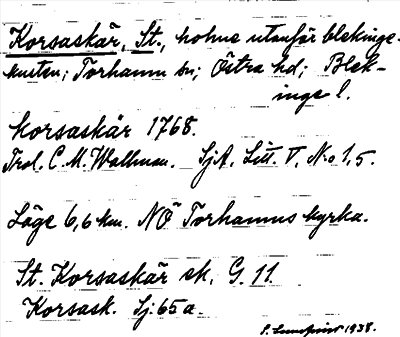 Korsaskär, St., holme utanför blekinge-
kusten; Torhamn sn; Östra hd; Blek-
inge l.
Korsaskär 1768.
Trol. C. M. Wallman. SjA. Litt. V. No 1,5.
Läge 6,6 km. NÖ Torhamns kyrka.
St. Korsaskär ek. G. 11.
Korsask. Sj. 65 a.
1938.